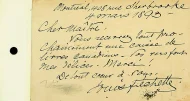 Montréal, 408 rue Sherbrooke
4 mars 1893
Cher Maître,
Vous recevrez tout pro-
chainement une caisse de
livres canadiens
mes Merci!
De tout cœur à vous,
Louis Fréchette